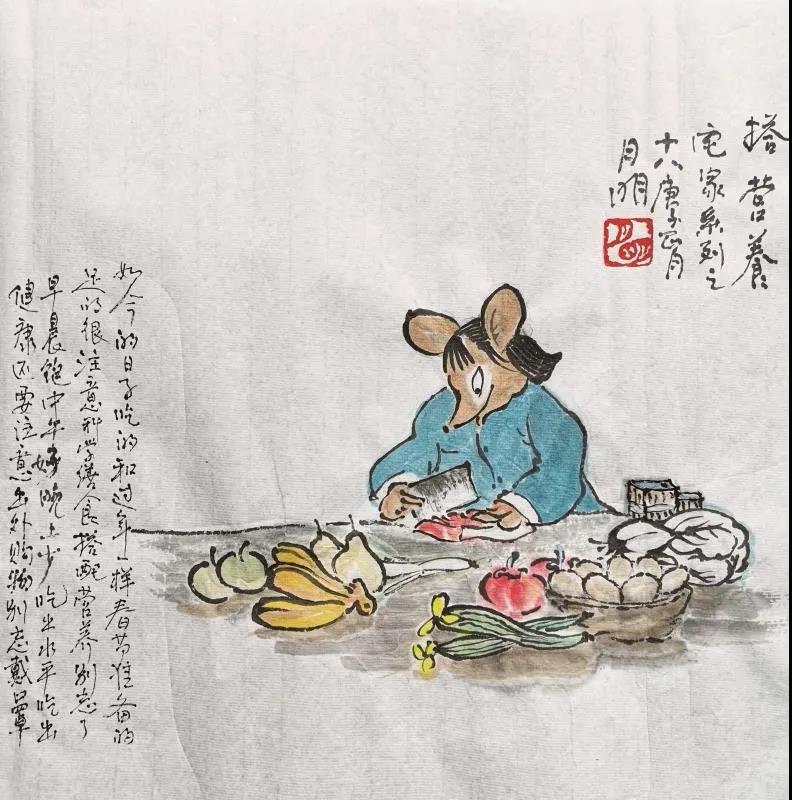 搭营养
宅家系列之
十八庚子正月
月明
如今的日子吃的和过年一样春节准备的
足的很注意科学膳食搭配营养别忘了
早晨饱中午好晚上少吃出水平吃出
健康还要注意出外购物别忘戴口罩